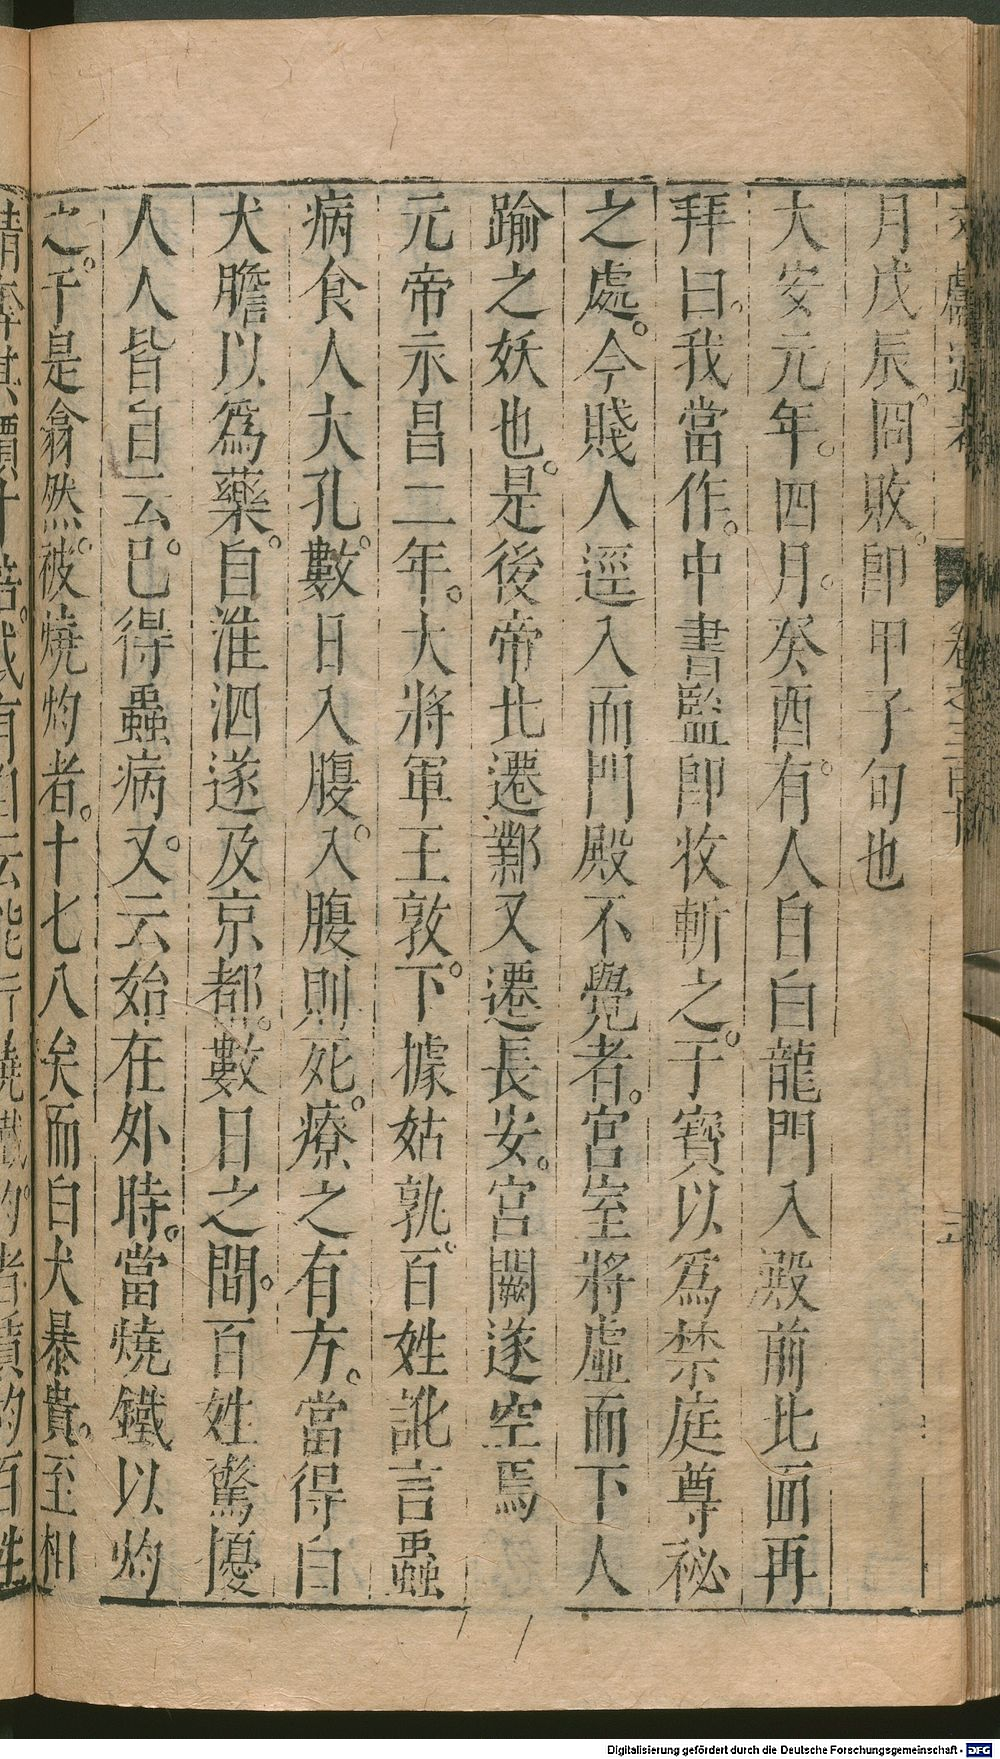 月戊辰。冏敗。卽甲子旬也
大安元年。四月。癸酉。有人自白龍門入殿前北面再
拜曰。我當作。中書監卽收斬之。于寶以爲禁庭尊祕
之處。今賤人逕入而門殿不覺者。宮室將虛而下人
踰之妖也。是後帝北遷鄴又遷長安。宮闕遂空焉
元帝永昌二年。大將軍王敦。下據姑孰。百姓訛言蟲
病食人大孔。數日入腹。入腹則死。療之有方。當得白
犬膽以爲藥。自淮泗遂及京都。數日之間。百姓驚擾
人人皆自云。已得蟲病。又云始在外時。當燒鐵以灼
之。于是翕然。被燒灼者。十七八矣而白犬暴貴。至相
Digitalisierung gefördert durch die Deutsche Forschungsgemeinschaft - DFG